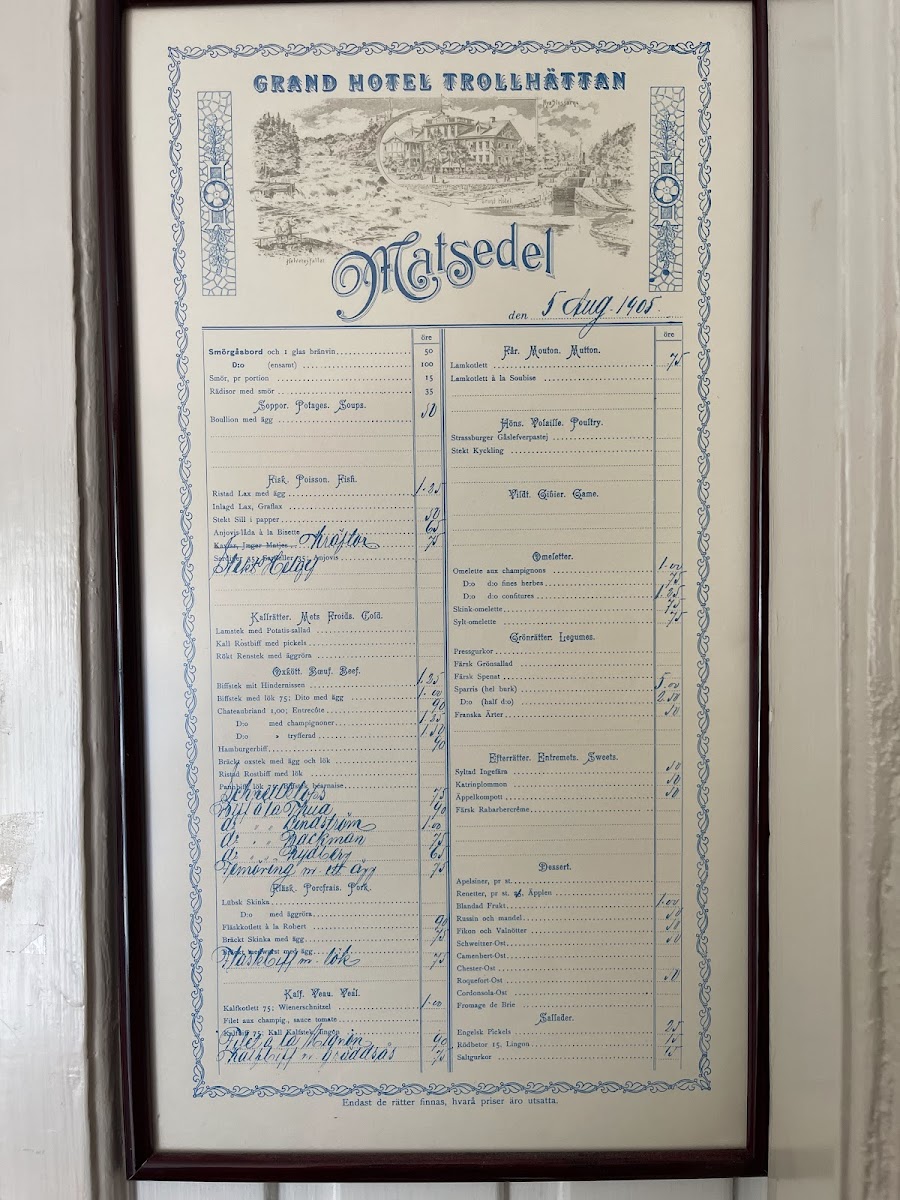 GRAND HOTEL TROLLHÄTTAN
Grand Hotel
Matsedel
den 5 Aug. 1905.
öre
Smörgåsbord och 1 glas bränvin 50
D:o (ensamt) 100
Smör, pr portion 15
Rädisor med smör 35
Soppor. Potages. Soups.
Boullion med ägg 50
Fisk. Poisson. Fish.
Ristad Lax med ägg 1.25
Inlagd Lax, Graflax
Stekt Sill i papper 50
Anjovislåda à la Bisette 65
Kaviar, Jngar Matjes Kräftor 75
Anjovis
Kallrätter. Mets Froids. Cold.
Lamstek med Potatis-sallad
Kall Rostbiff med pickels
Rökt Renstek med äggröra
Oxkött. Bœuf. Beef.
Biffstek mit Hindernissen 1.25
Biffstek med lök 75; Dito med ägg 1.00
Chateaubriand 1,00; Entrecôte 90
D:o med champignoner 1.25
D:o » tryfferad 1.50
Hamburgerbiff 90
Bräckt oxstek med ägg och lök
Ristad Rostbiff med lök
Pannbiff lök béarnaise
75
Biff à la 90
d:o " " Lindström 1.00
d:o " " Backman 75
d:o " " Rydberg 65
m. ett ägg 75
Fläsk. Porcfrais. Pork.
Lübsk Skinka
D:o med äggröra
Fläskkotlett à la Robert 90
Bräckt Skinka med ägg 75
med ägg
Fläskbiff m. lök 75
Kalf. Veau. Veal.
Kalfkotlett 75; Wienerschnitzel 1.00
Filet aux champig., sauce tomate
75; Kall Kalfstek lingon
Filet à la Mignon 90
Kalfbiff m. gräddsås 75
öre
Får. Mouton. Mutton.
Lamkotlett 75
Lamkotlett à la Soubise
Höns. Volaille. Poultry.
Strassburger Gåslefverpastej
Stekt Kyckling
Vildt. Gibier. Game.
Omeletter.
Omelette aux champignons 1.00
D:o d:o fines herbes 75
D:o d:o confitures 1.25
Skink-omelette 75
Sylt-omelette 75
Grönrätter. Legumes.
Pressgurkor
Färsk Grönsallad
Färsk Spenat
Sparris (hel burk) 5.00
D:o (half d:o) 2.50
Franska Ärter 50
Efterrätter. Entremets. Sweets.
Syltad Ingefära 50
Katrinplommon 50
Äppelkompott 50
Färsk Rabarbercrême
Dessert.
Apelsiner, pr st.
Renetter, pr st. Äpplen
Blandad Frukt 1.00
Russin och mandel 50
Fikon och Valnötter 50
Schweitzer-Ost 50
Camenbert-Ost
Chester-Ost
Roquefort-Ost 50
Cordonsola-Ost
Fromage de Brie
Salleder.
Engelsk Pickels 25
Rödbetor 15, Lingon 15
Saltgurkor 15
Endast de rätter finnas, hvarå priser äro utsatta.